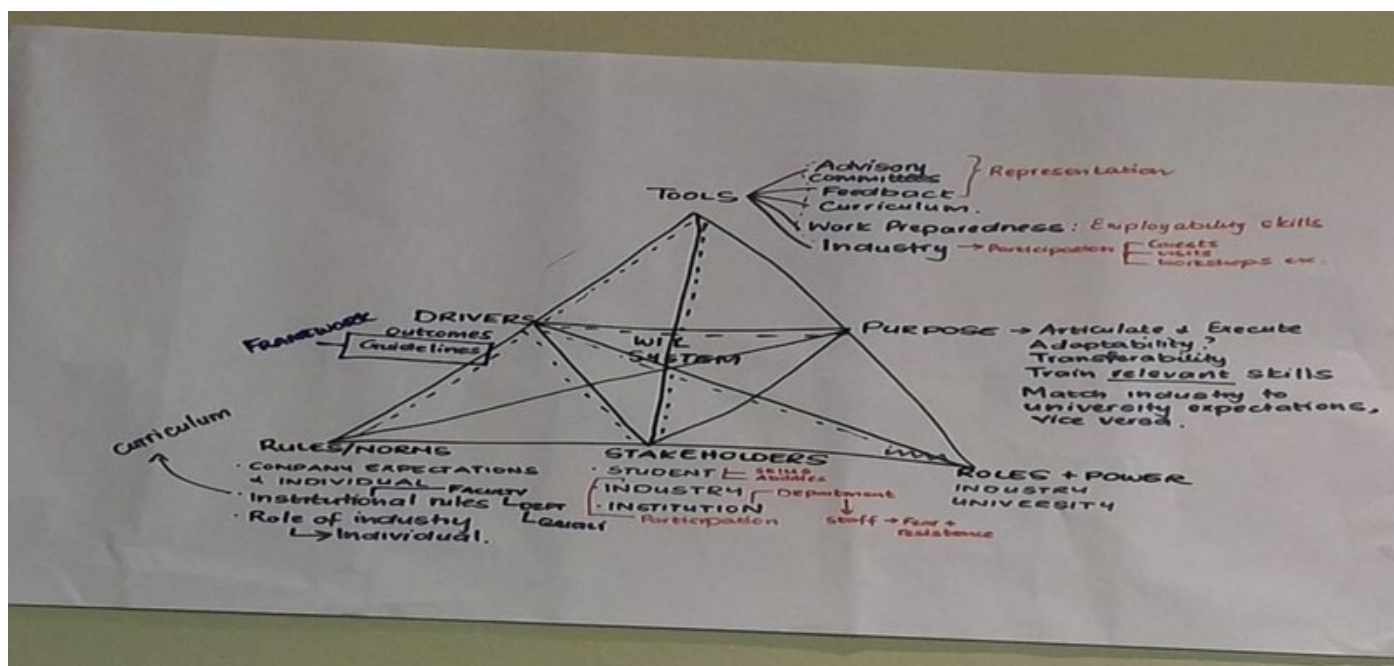 TOOLS
Advisory
Committees
Feedback
Curriculum.
} Representation
Work Preparedness: Employability skills
Industry → Participation
Guests
visits
workshops etc.
DRIVERS
FRAMEWORK
Outcomes
Guidelines
WIL
SYSTEM
PURPOSE → Articulate & Execute
Adaptability?
Transferability
Train relevant skills
Match industry to
university expectations,
vice versa.
Curriculum
RULES/NORMS
· COMPANY EXPECTATIONS
& INDIVIDUAL
· Institutional rules
FACULTY
DEPT
· Role of industry
↳ Individual.
STAKEHOLDERS
· STUDENT
Skills
Abilities
· INDUSTRY
· INSTITUTION
Department
Participation
Staff → Fear +
resistence
ROLES + POWER
INDUSTRY
UNIVERSITY